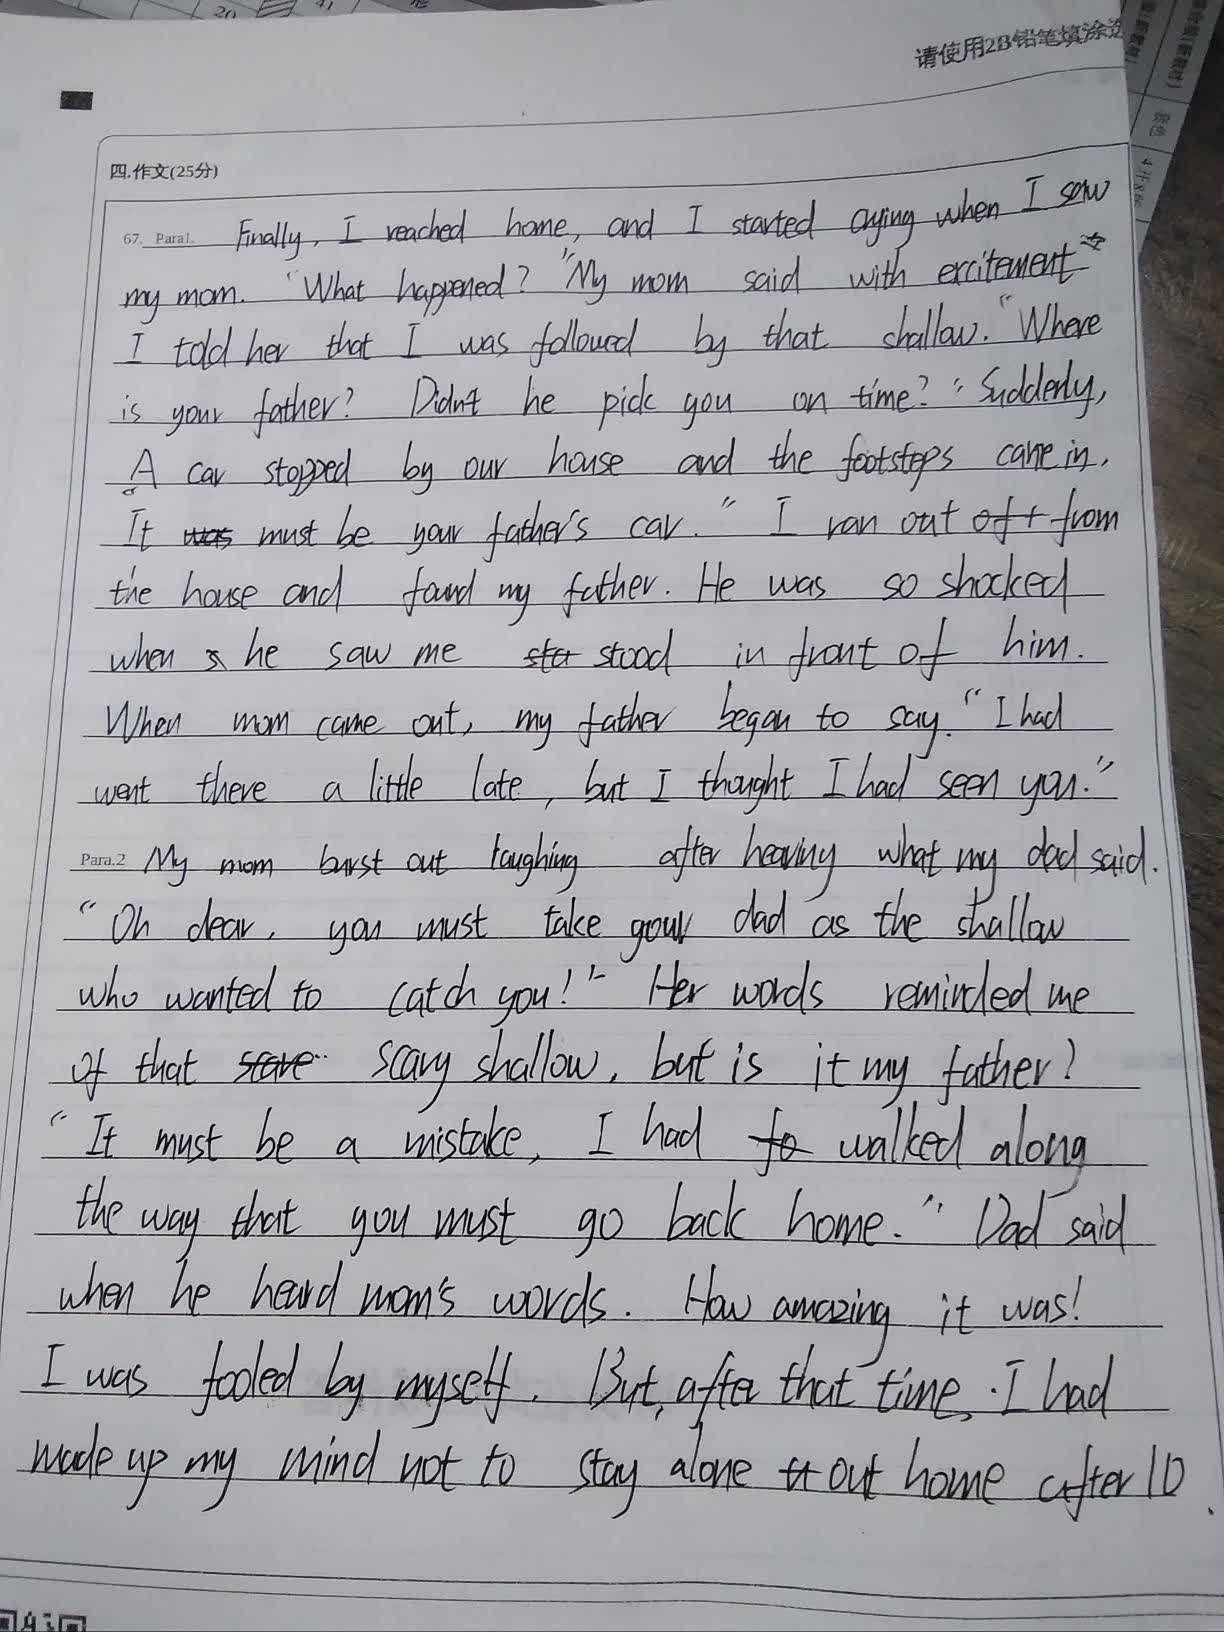 请使用2B铅笔填涂选
四.作文(25分)
67. Para1. Finally, I reached home, and I started crying when I saw
my mom. "What happened? "My mom said with excitement
I told her that I was followed by that shallow. "Where
is your father? Didn't he pick you on time?" Suddenly,
A car stopped by our house and the footsteps came in.
It was must be your father's car." I ran out of from
the house and found my father. He was so shocked
when he saw me stood in front of him.
When mom came out, my father began to say. "I had
went there a little late, but I thought I had seen you."
Para.2 My mom burst out laughing after hearing what my dad said.
"Oh dear, you must take your dad as the shallow
who wanted to catch you!" Her words reminded me
of that scary shallow, but is it my father?
"It must be a mistake, I had walked along
the way that you must go back home." Dad said
when he heard mom's words. How amazing it was!
I was fooled by myself. But, after that time, I had
made up my mind not to stay alone out home after 10